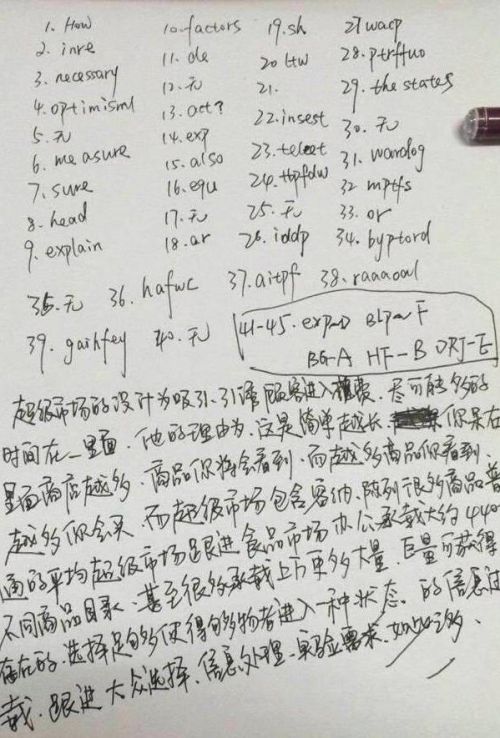 1. How 10. factors 19. sh 27 wacp
2. inre 11. de 20 ttw 28. ptrffuo
3. necessary 12. 无 21. 29. the states
4. optimisml 13. act? 22. insest 30. 无
5. 无 14. exp 23. teleet 31. wardog
6. measure 15. also 24. 32 mptfs
7. sure 16. equ 25. 无 33. or
8. head 17. 无 26. iddp 34. byptord
9. explain 18. ar
35. 无 36. hafwc 37. aitpf 38. raaaoal
39. gaihfey 40. 无 41-45. F
BG-A HF-B DRJ-E
超级市场的设计为吸引.引诱顾客进入 尽可能多的
时间在一里面. 他的理由为.这是简单越长. 你呆在
里面商店越多. 商品你将会看到.而越多商品你看到.
越多你会买. 而超级市场包含容纳.陈列很多商品普
通的平均超级市场跟进食品市场办公承载大约440
不同商品目录.甚至很多承载上万更多大量.巨量可获得
存在的.选择足够多使得购物者进入一种状态.的信息过
载.跟进大众选择.信息处理-实验要求.如此之多.